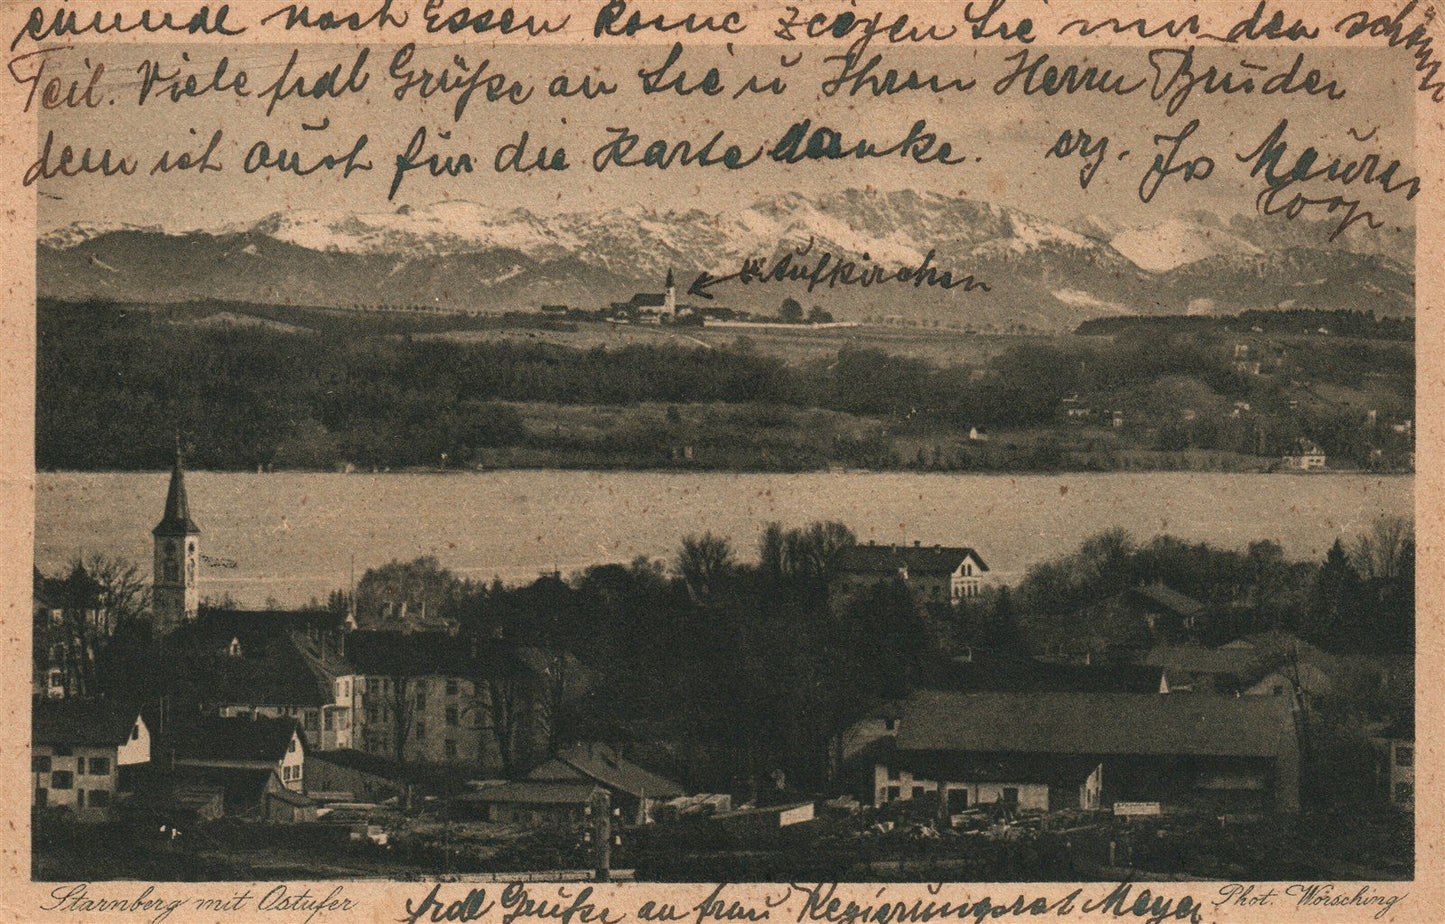 nach Essen komme zeigen Sie mir den schönsten
Teil. Viele frdl Grüße an Sie u Ihren Herrn Bruder
dem ich auch für die Karte danke. erg. Jos Maurer
Coop.
Aufkirchen
Starnberg mit Ostufer
frdl Grüße an Frau Regierungsrat Mayer
Phot. Wörsching